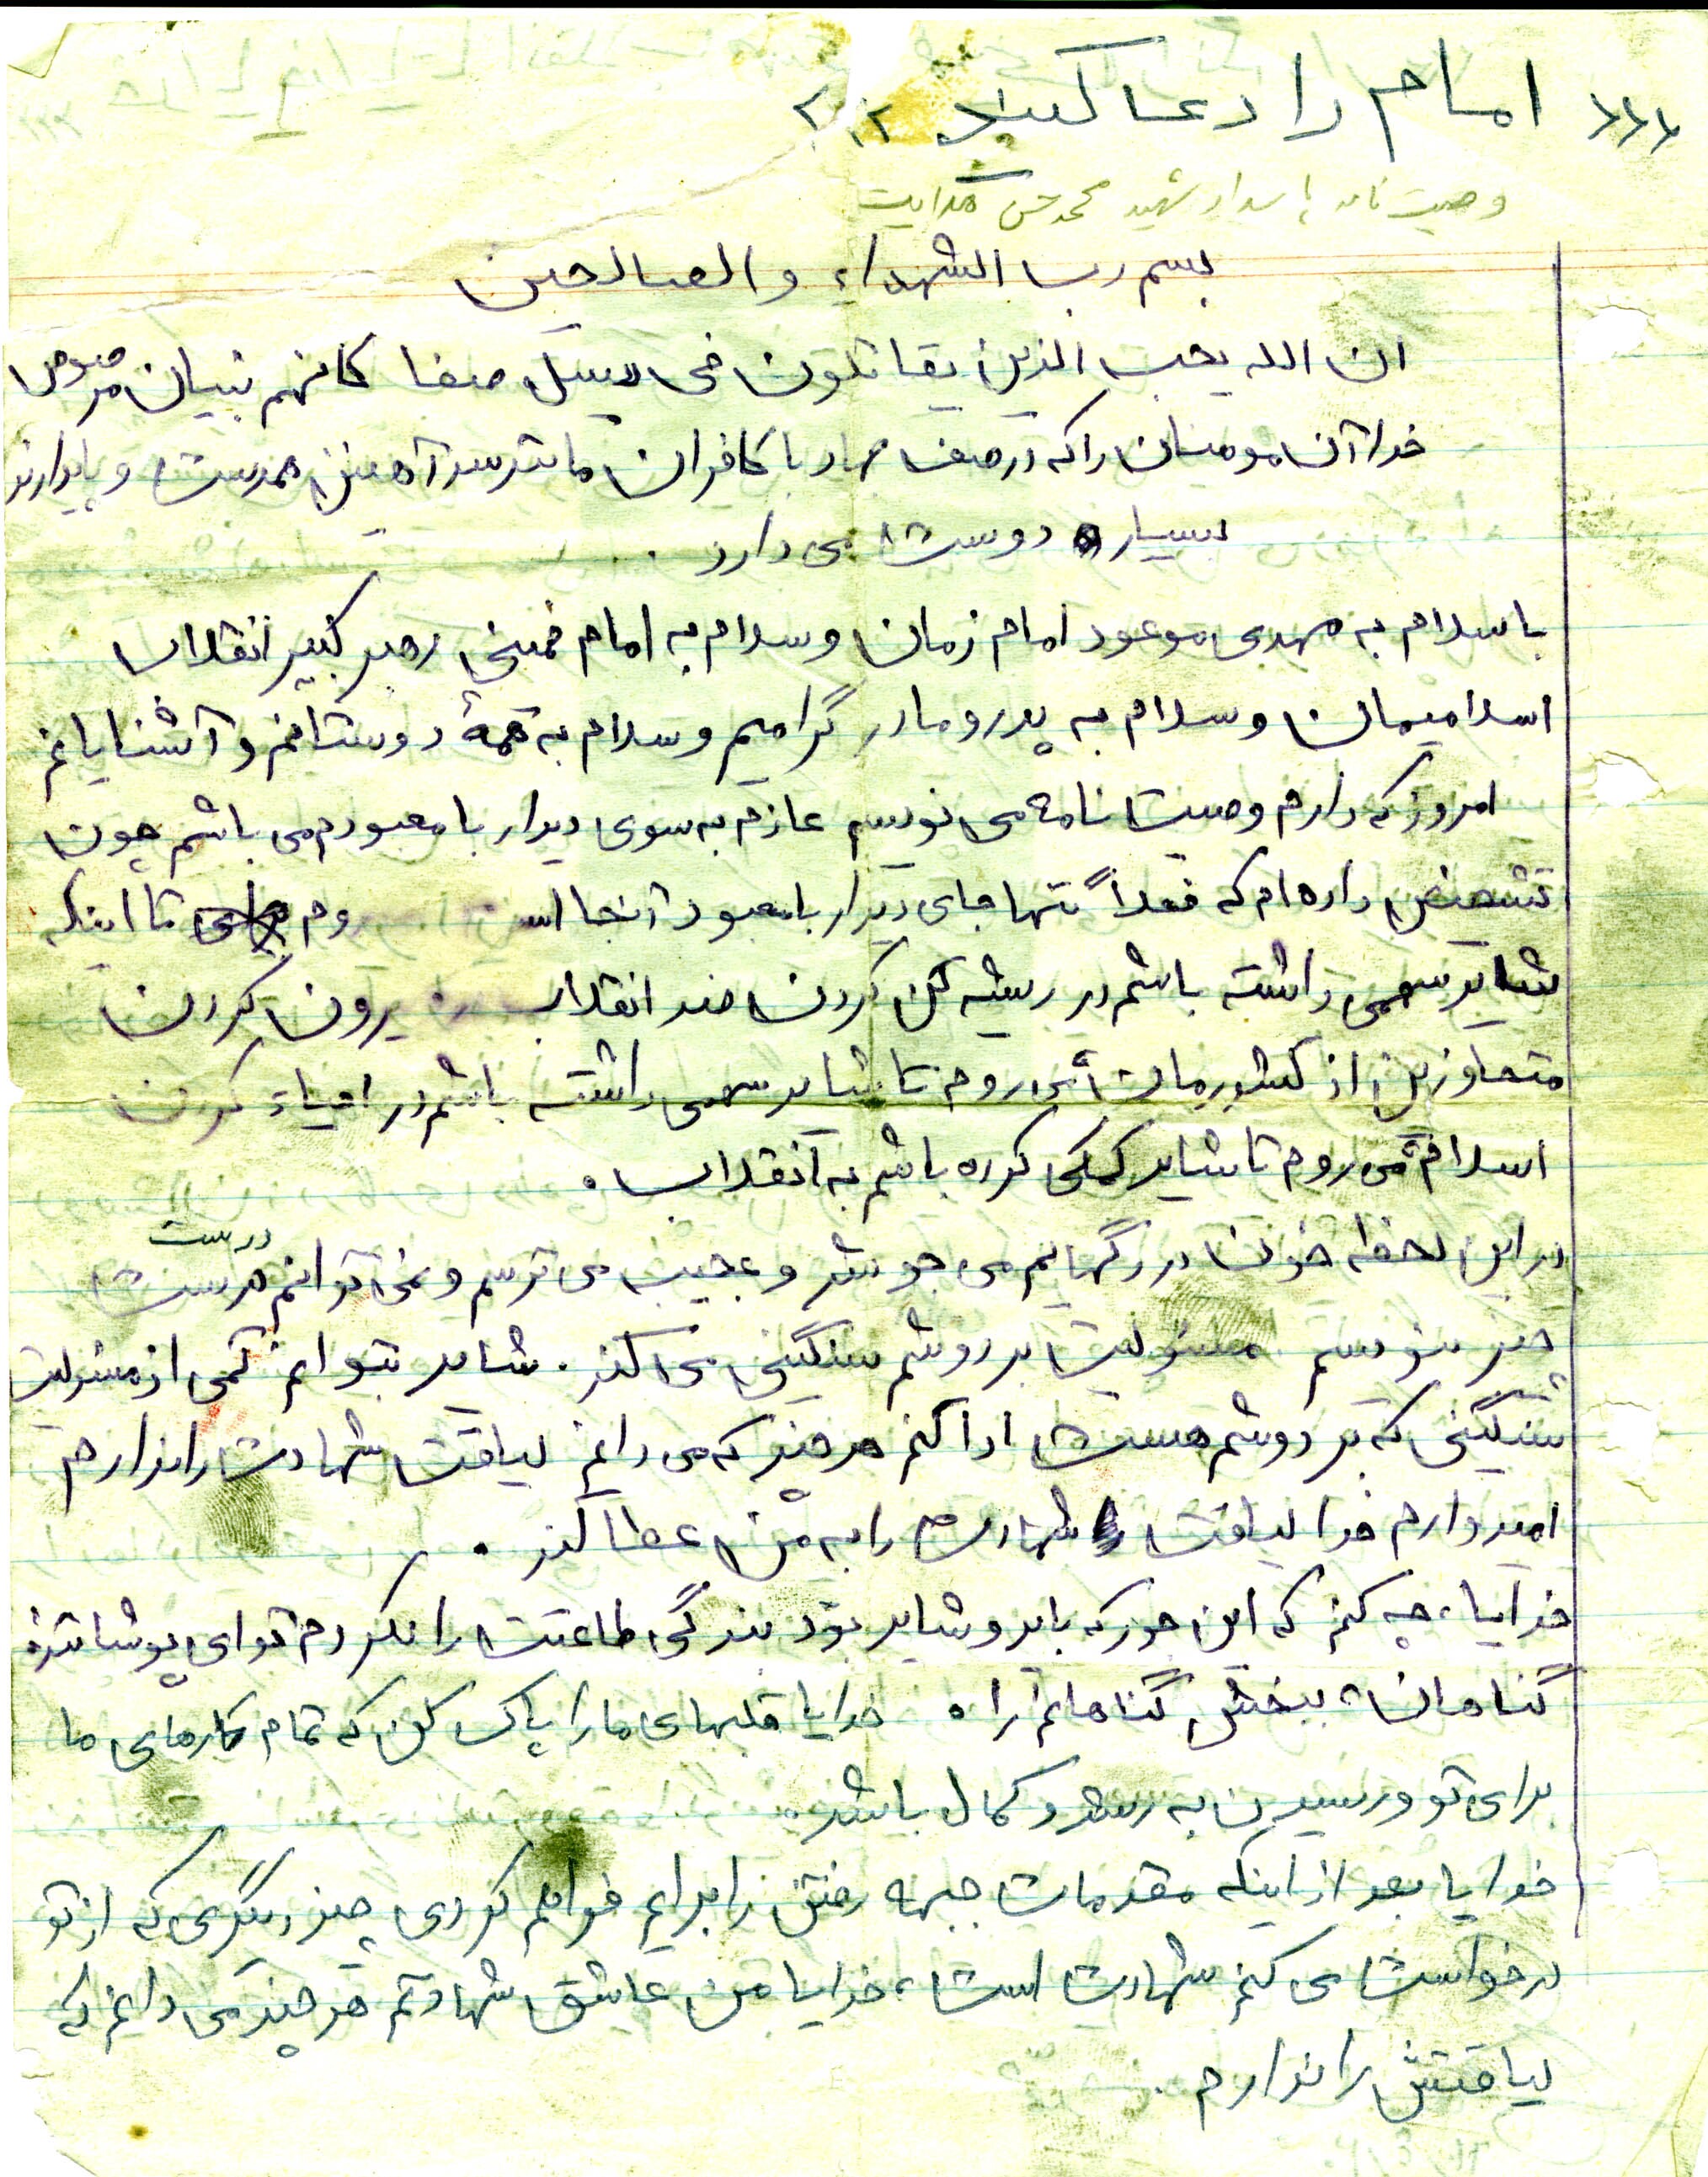 امام را دعا کنید
وصیت نامه پاسدار شهید محمدحسن هدایت
بسم رب الشهداء و الصالحین
ان الله یحب الذین یقاتلون فی سبیل صفا کانهم بنیان مرصوص
خدا آن مومنان را که در صف جهاد با کافران مانند سد آهنین همدست و پایدارند
بسیار دوست می دارد .
با سلام به مهدی موعود امام زمان و سلام به امام خمینی رهبر کبیر انقلاب
اسلامیمان و سلام به پدر و مادر گرامیم و سلام به همهٔ دوستانم و آشنایانم
امروز که دارم وصیت نامه می نویسم عازم به سوی دیدار با معبودم می باشم چون
تشخیص داده ام که فعلاً تنها جای دیدار با معبود آنجا روم تا اینکه
شاید سهمی داشته باشم در ریشه کن کردن ضد انقلاب بیرون کردن
متجاوزین از کشورمان می روم تا شاید سهمی داشته باشم در احیاء کردن
اسلام می روم تا شاید کمکی کرده باشم به انقلاب .
در این لحظه خون در رگهایم می جوشد و عجیب می ترسم و نمی توانم درست درست
چیز بنویسم مسئولیت بر دوشم سنگینی می کند . شاید بتوانم کمی از مسئولیت
سنگینی که بر دوشم هست ادا کنم هر چند که می دانم لیاقت شهادت را ندارم
امیدوارم خدا لیاقت شهادت را به من عطا کند .
خدایا ، چه کنم که این جور که باید و شاید بود بندگی طاعتت را نکردم تو ای پوشانندهٔ
گناهان ، ببخش گناهانم را . خدایا قلبهای ما را پاک کن که تمام کارهای ما
برای تو و رسیدن به رشد و کمال باشد .
خدایا بعد از اینکه مقدمات جبهه رفتن را برایم فراهم کردی چیز دیگری که از تو
درخواست می کنم شهادت است ، خدایا من عاشق شهادتم هر چند می دانم که
لیاقتش را ندارم .